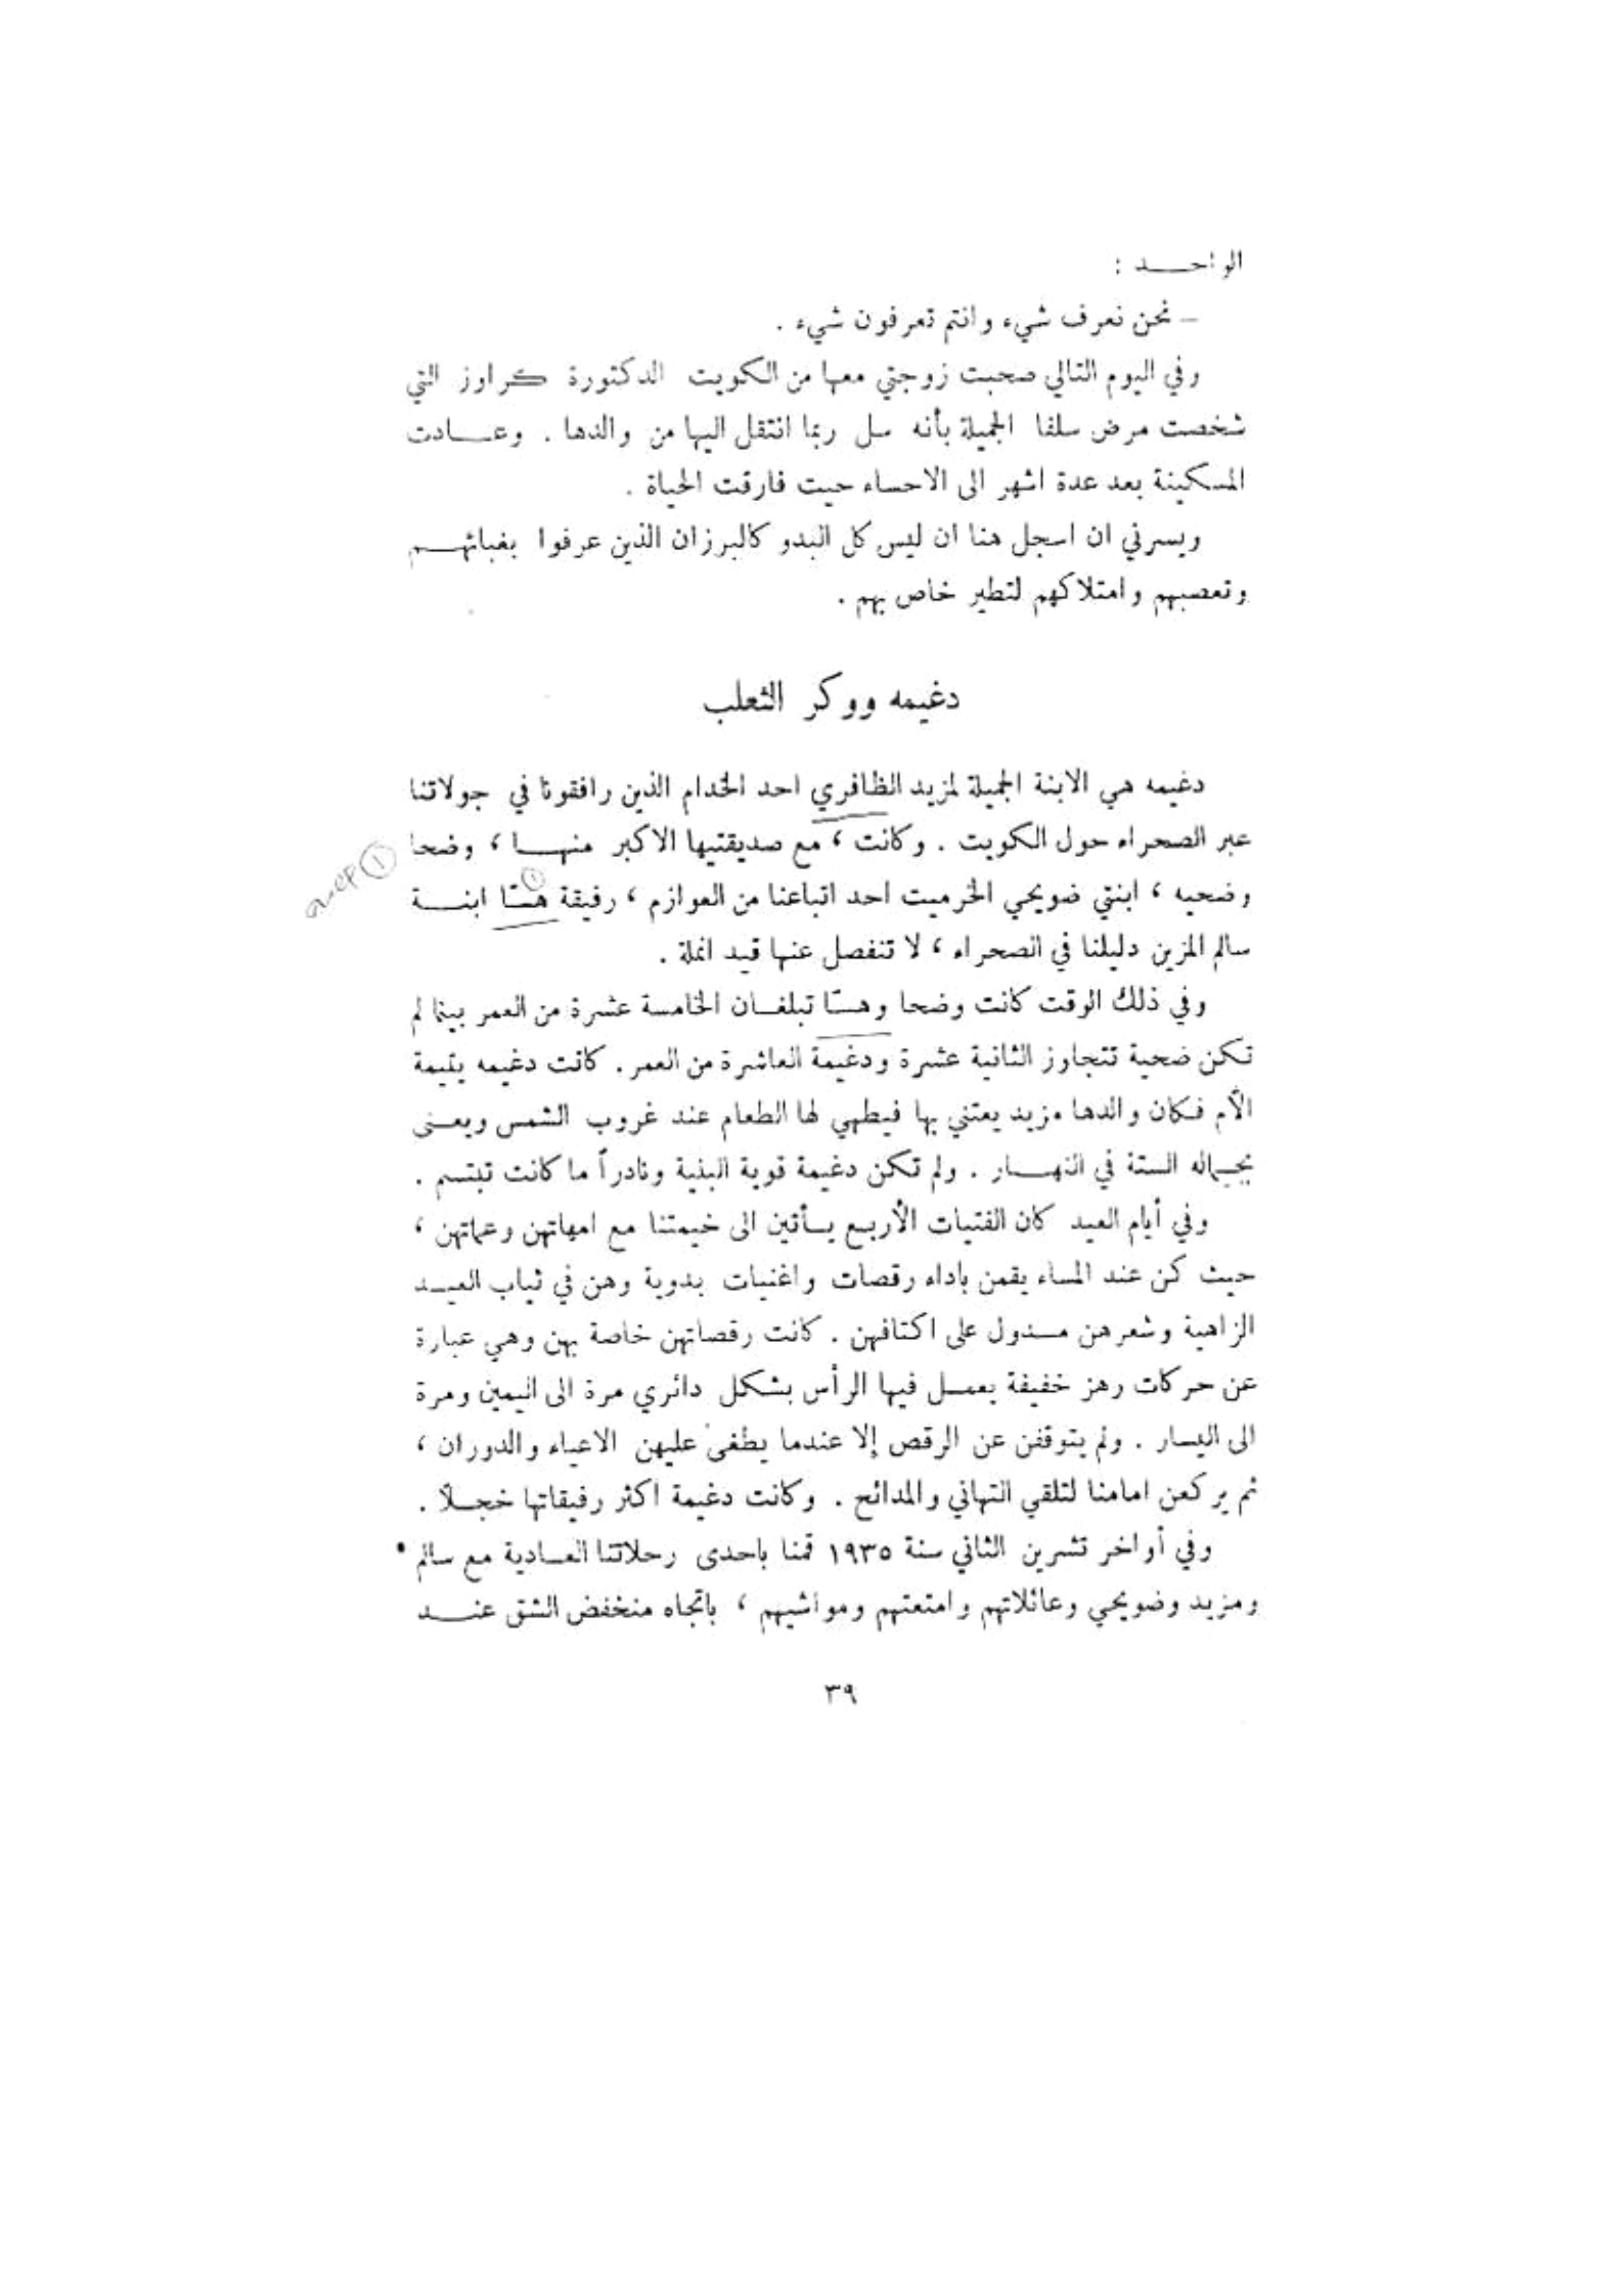 الواحد :
– نحن نعرف شيء وانتم تعرفون شيء .
وفي اليوم التالي صحبت زوجتي معها من الكويت الدكتورة كراوز التي
شخصت مرض سلفا الجميلة بأنه سل ربما انتقل اليها من والدها . وعادت
المسكينة بعد عدة اشهر الى الاحساء حيث فارقت الحياة .
ويسرني ان اسجل هنا ان ليس كل البدو كالبرزان الذين عرفوا بغبائهم
وتعصبهم وامتلاكهم لتطير خاص بهم .
دغيمه ووكر الثعلب
دغيمه هي الابنة الجميلة لمزيد الظافري احد الخدام الذين رافقونا في جولاتنا
عبر الصحراء حول الكويت . وكانت ، مع صديقتيها الاكبر منها ، وضحا
وضحيه ، ابنتي ضويحي الخرميت احد اتباعنا من العوازم ، رفيقة هسّا ابنة
سالم المزين دليلنا في الصحراء ، لا تنفصل عنها قيد انملة .
وفي ذلك الوقت كانت وضحا وهسّا تبلغان الخامسة عشرة من العمر بينما لم
تكن ضحية تتجاوز الثانية عشرة ودغيمة العاشرة من العمر . كانت دغيمه يتيمة
الأم فكان والدها مزيد يعتني بها فيطهي لها الطعام عند غروب الشمس ويعنى
بجماله الستة في النهار . ولم تكن دغيمة قوية البنية ونادراً ما كانت تبتسم .
وفي أيام العيد كان الفتيات الأربع يأتين الى خيمتنا مع امهاتهن وعماتهن ،
حيث كن عند المساء يقمن باداء رقصات واغنيات بدوية وهن في ثياب العيد
الزاهية وشعرهن مسدول على اكتافهن . كانت رقصاتهن خاصة بهن وهي عبارة
عن حركات رهز خفيفة يعمل فيها الرأس بشكل دائري مرة الى اليمين ومرة
الى اليسار . ولم يتوقفن عن الرقص إلا عندما يطغى عليهن الاعياء والدوران ،
ثم يركعن امامنا لتلقي التهاني والمدائح . وكانت دغيمة اكثر رفيقاتها خجلاً .
وفي أواخر تشرين الثاني سنة ١٩٣٥ قمنا باحدى رحلاتنا العادية مع سالم
ومزيد وضويحي وعائلاتهم وامتعتهم ومواشيهم ، باتجاه منخفض الشق عند
٣٩